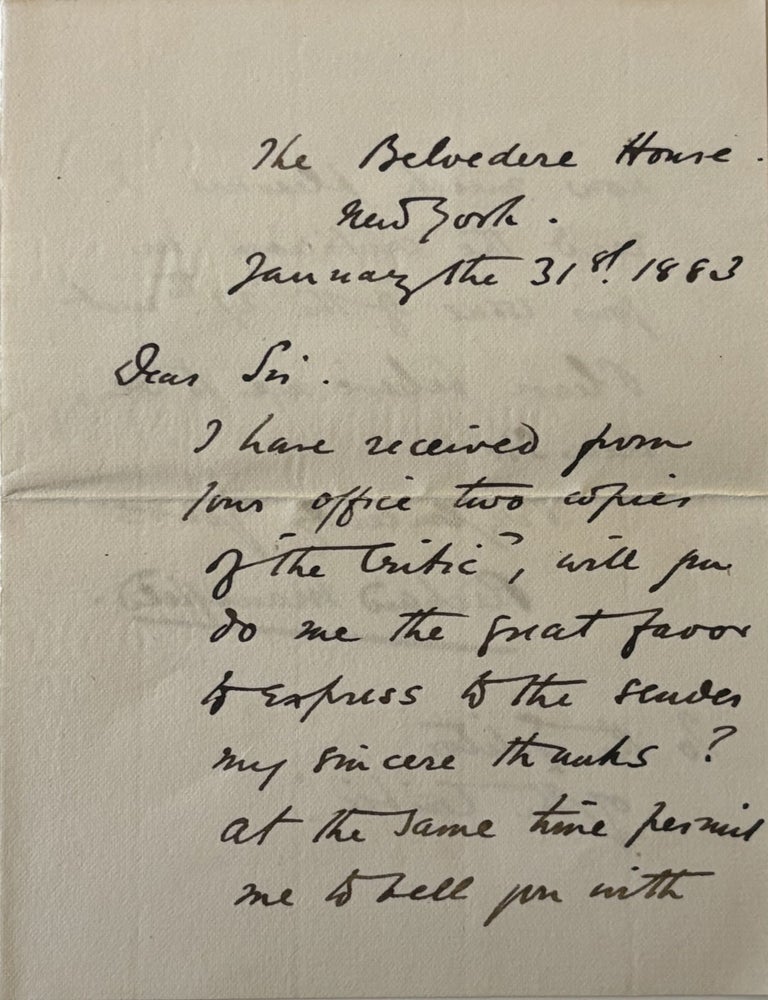 The Belvedere House.
New York.
January the 31st. 1883
Dear Sir.
I have received from
your office two copies
of "the Critic", will you
do me the great favor
to express to the sender
my sincere thanks?
at the same time permit
me to tell you with